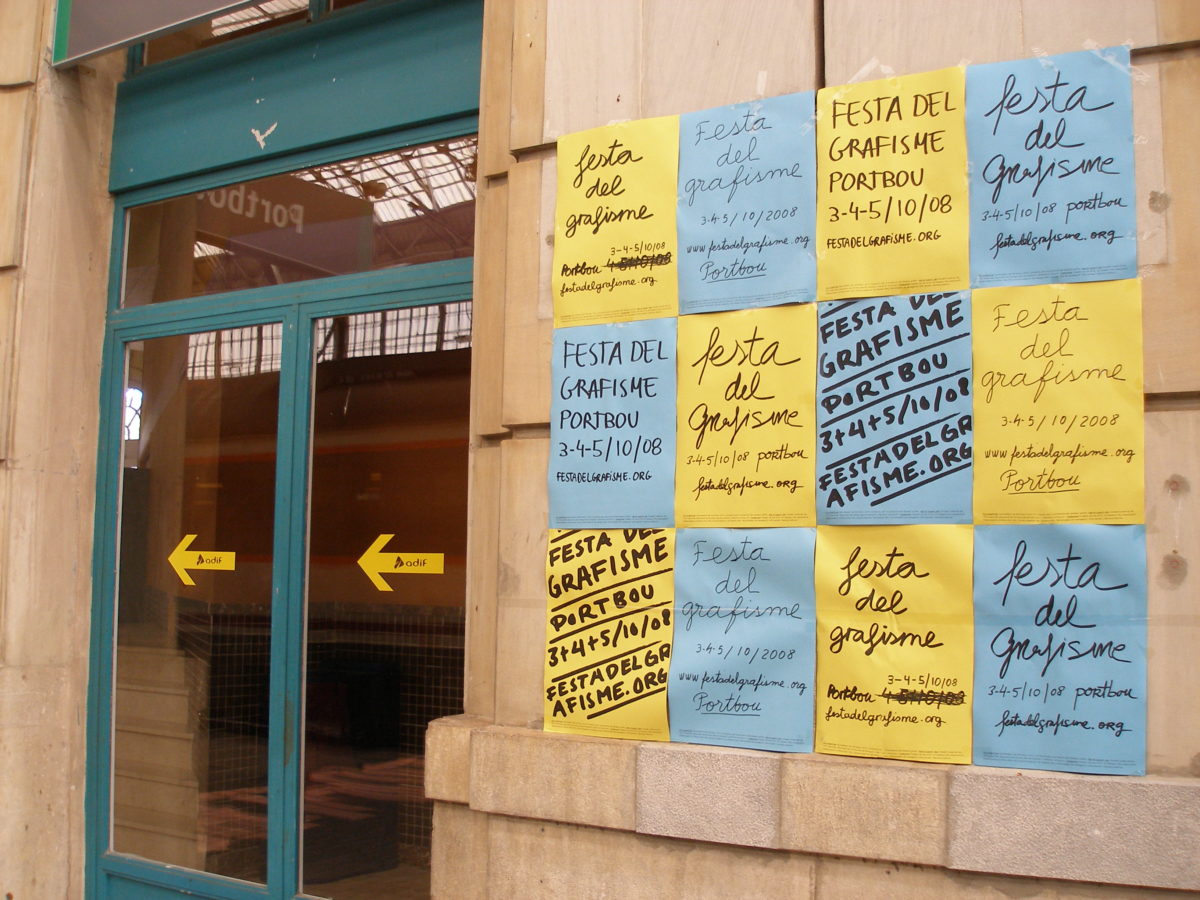 Portbou
adif
adif
festa
del
grafisme
3-4-5/10/08
Portbou
festadelgrafisme.org
Festa
del
grafisme
3-4-5/10/2008
www.festadelgrafisme.org
Portbou
FESTA DEL
GRAFISME
PORTBOU
3-4-5/10/08
FESTADELGRAFISME.ORG
festa
del
Grafisme
3-4-5/10/08 portbou
festadelgrafisme.org
FESTA DEL
GRAFISME
PORTBOU
3-4-5/10/08
FESTADELGRAFISME.ORG
festa
del
Grafisme
3-4-5/10/08 portbou
festadelgrafisme.org
FESTA DEL
GRAFISME
PORTBOU
3+4+5/10/08
FESTADELGR
AFISME.ORG
Festa
del
grafisme
3-4-5/10/2008
www.festadelgrafisme.org
Portbou
FESTA DEL
GRAFISME
PORTBOU
3+4+5/10/08
FESTADELGR
AFISME.ORG
Festa
del
grafisme
3-4-5/10/2008
www.festadelgrafisme.org
Portbou
festa
del
grafisme
3-4-5/10/08
Portbou
festadelgrafisme.org
festa
del
Grafisme
3-4-5/10/08 portbou
festadelgrafisme.org